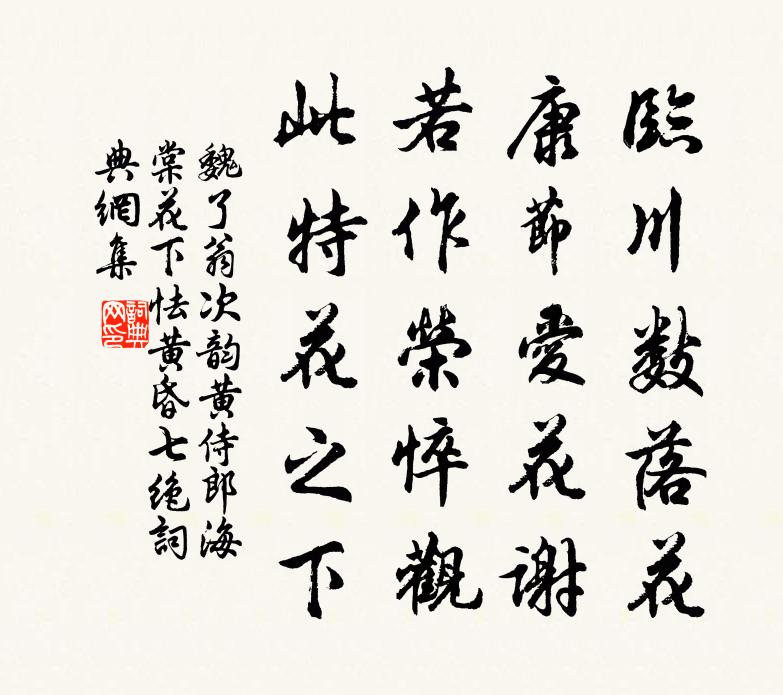 臨川數落花
康節愛花謝
若作榮悴觀
此特花之下
魏了翁次韵黄侍郎海
棠花下怯黄昏七绝詞
典網集
詞典網印